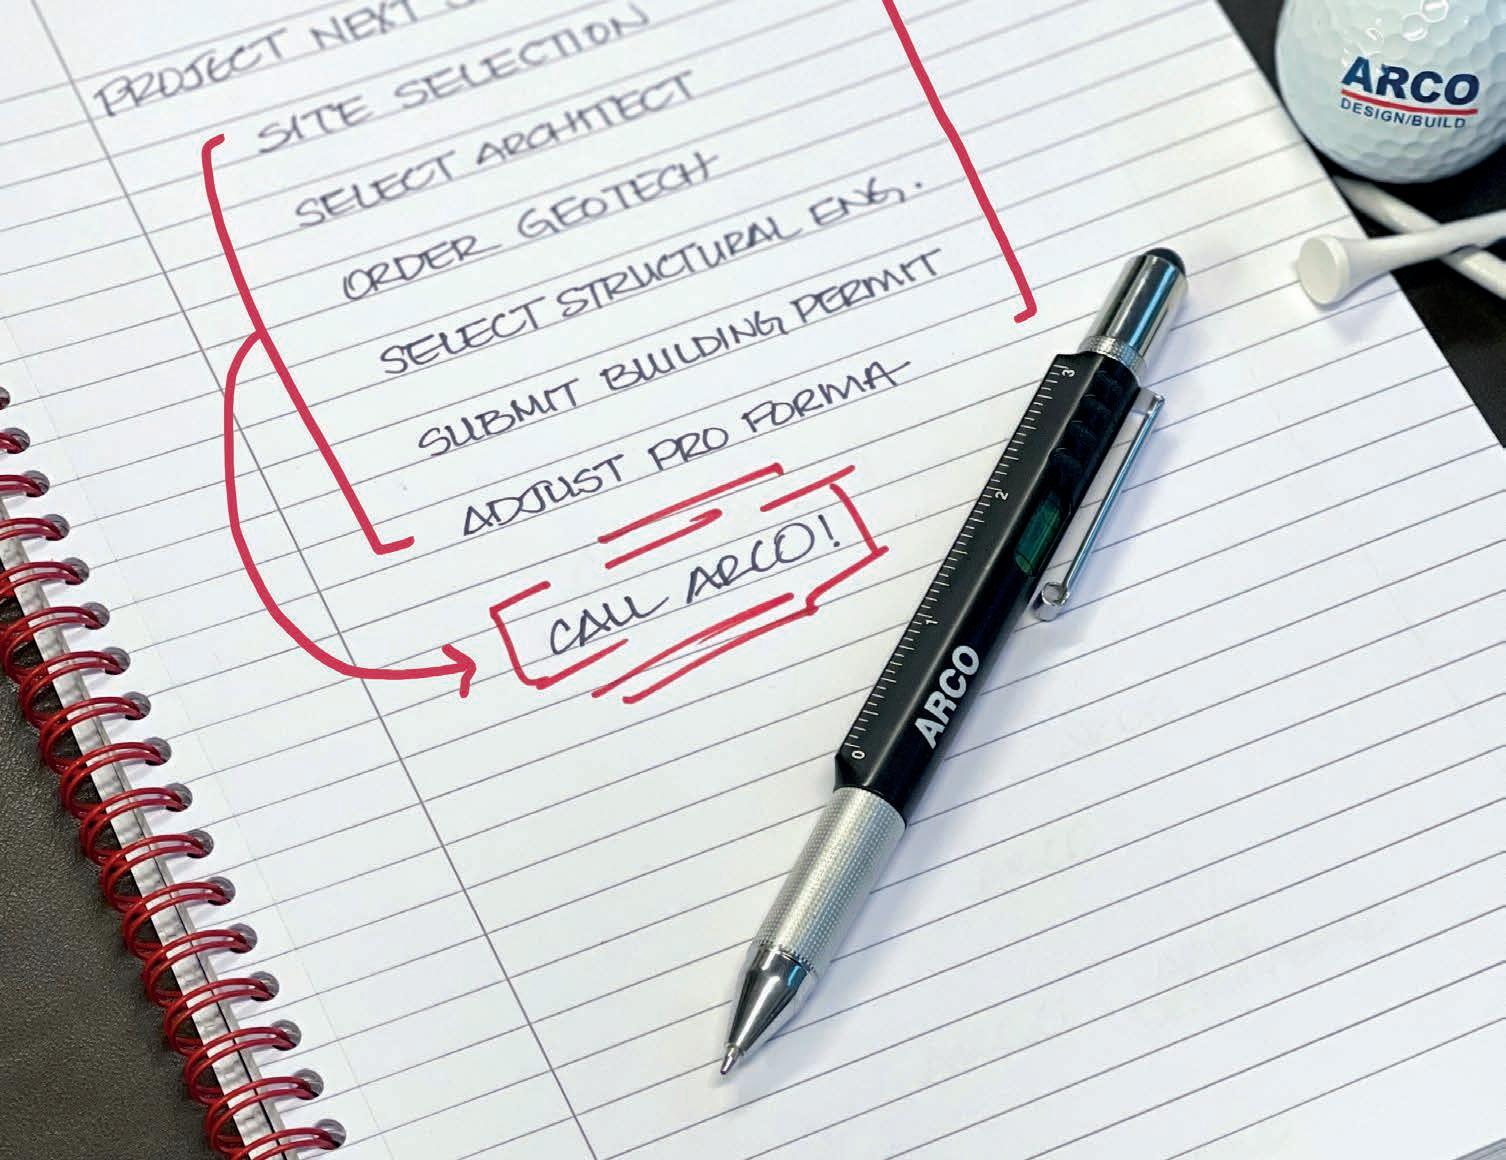 PROJECT NEXT
SITE SELECTION
SELECT ARCHITECT
ORDER GEOTECH
SELECT STRUCTURAL ENG.
SUBMIT BUILDING PERMIT
ADJUST PRO FORMA
CALL ARCO!
ARCO
DESIGN/BUILD
3
2
1
0
ARCO